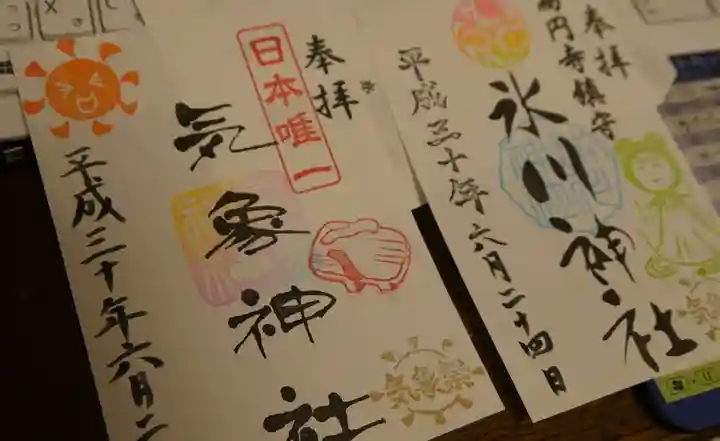 奉拝
日本唯一
気象神社
平成三十年六月二
気象祭
奉拝
高円寺鎮守
氷川神社
平成三十年六月二十四日